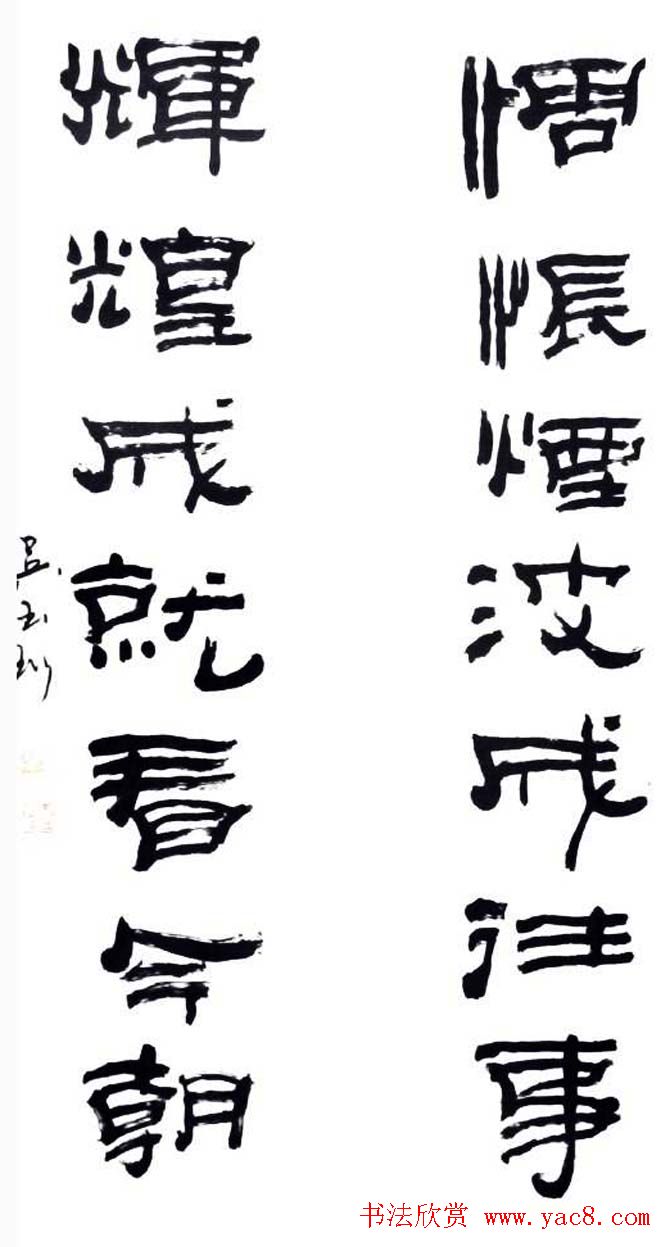 惆悵煙波成往事
輝煌成就看今朝
吳玉珊
书法欣赏 www.yac8.com